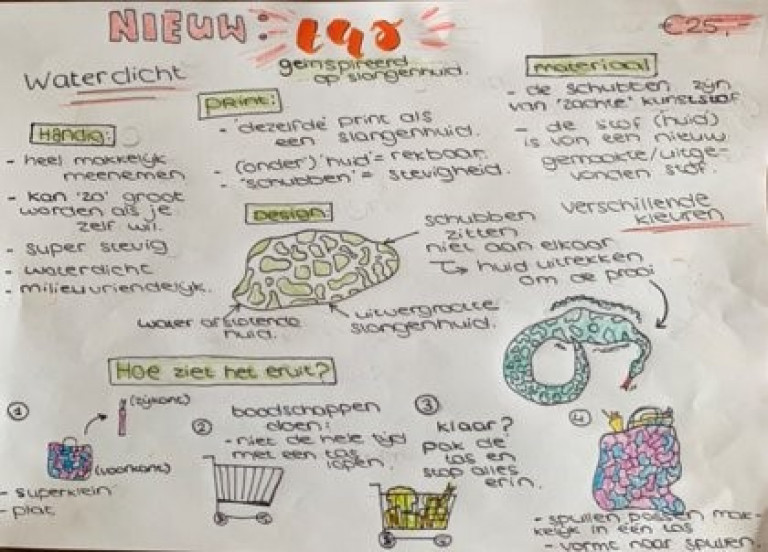 NIEUW: tas
geïnspireerd
op slangenhuid.
€25,-
Waterdicht
Handig:
- heel makkelijk
meenemen
- kan 'zo' groot
worden als je
zelf wil.
- super stevig
- waterdicht
- milieuvriendelijk.
Print:
- 'dezelfde' print als
een slangenhuid.
- (onder)'huid' = rekbaar.
- "schubben" = stevigheid.
materiaal
- de schubben zijn
van 'zachte' kunststof
- de stof (huid)
is van een nieuw
gemaakte/uitge-
vonden stof.
verschillende
kleuren
Design:
schubben
zitten
niet aan elkaar
↳ huid uitrekken
om de prooi
water afstotende
huid.
uitvergrootte
slangenhuid.
Hoe ziet het eruit?
①
(zijkant)
(voorkant)
- superklein
- plat
②
boodschappen
doen:
- niet de hele tijd
met een tas
lopen.
③
klaar?
Pak de
tas en
stop alles
erin.
④
- spullen passen mak-
kelijk in één tas
- vormt naar spullen.